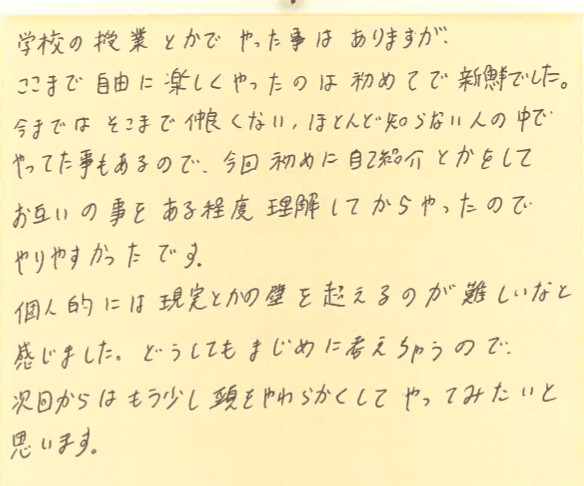 学校の授業とかでやった事はありますが、
ここまで自由に楽しくやったのは初めてで新鮮でした。
今まではそこまで仲良くない、ほとんど知らない人の中で
やってた事もあるので、今回初めに自己紹介とかをして
お互いの事をある程度理解してからやったので
やりやすかったです。
個人的には現実とかの壁を超えるのが難しいなと
感じました。どうしてもまじめに考えちゃうので、
次回からはもう少し頭をやわらかくしてやってみたいと
思います。